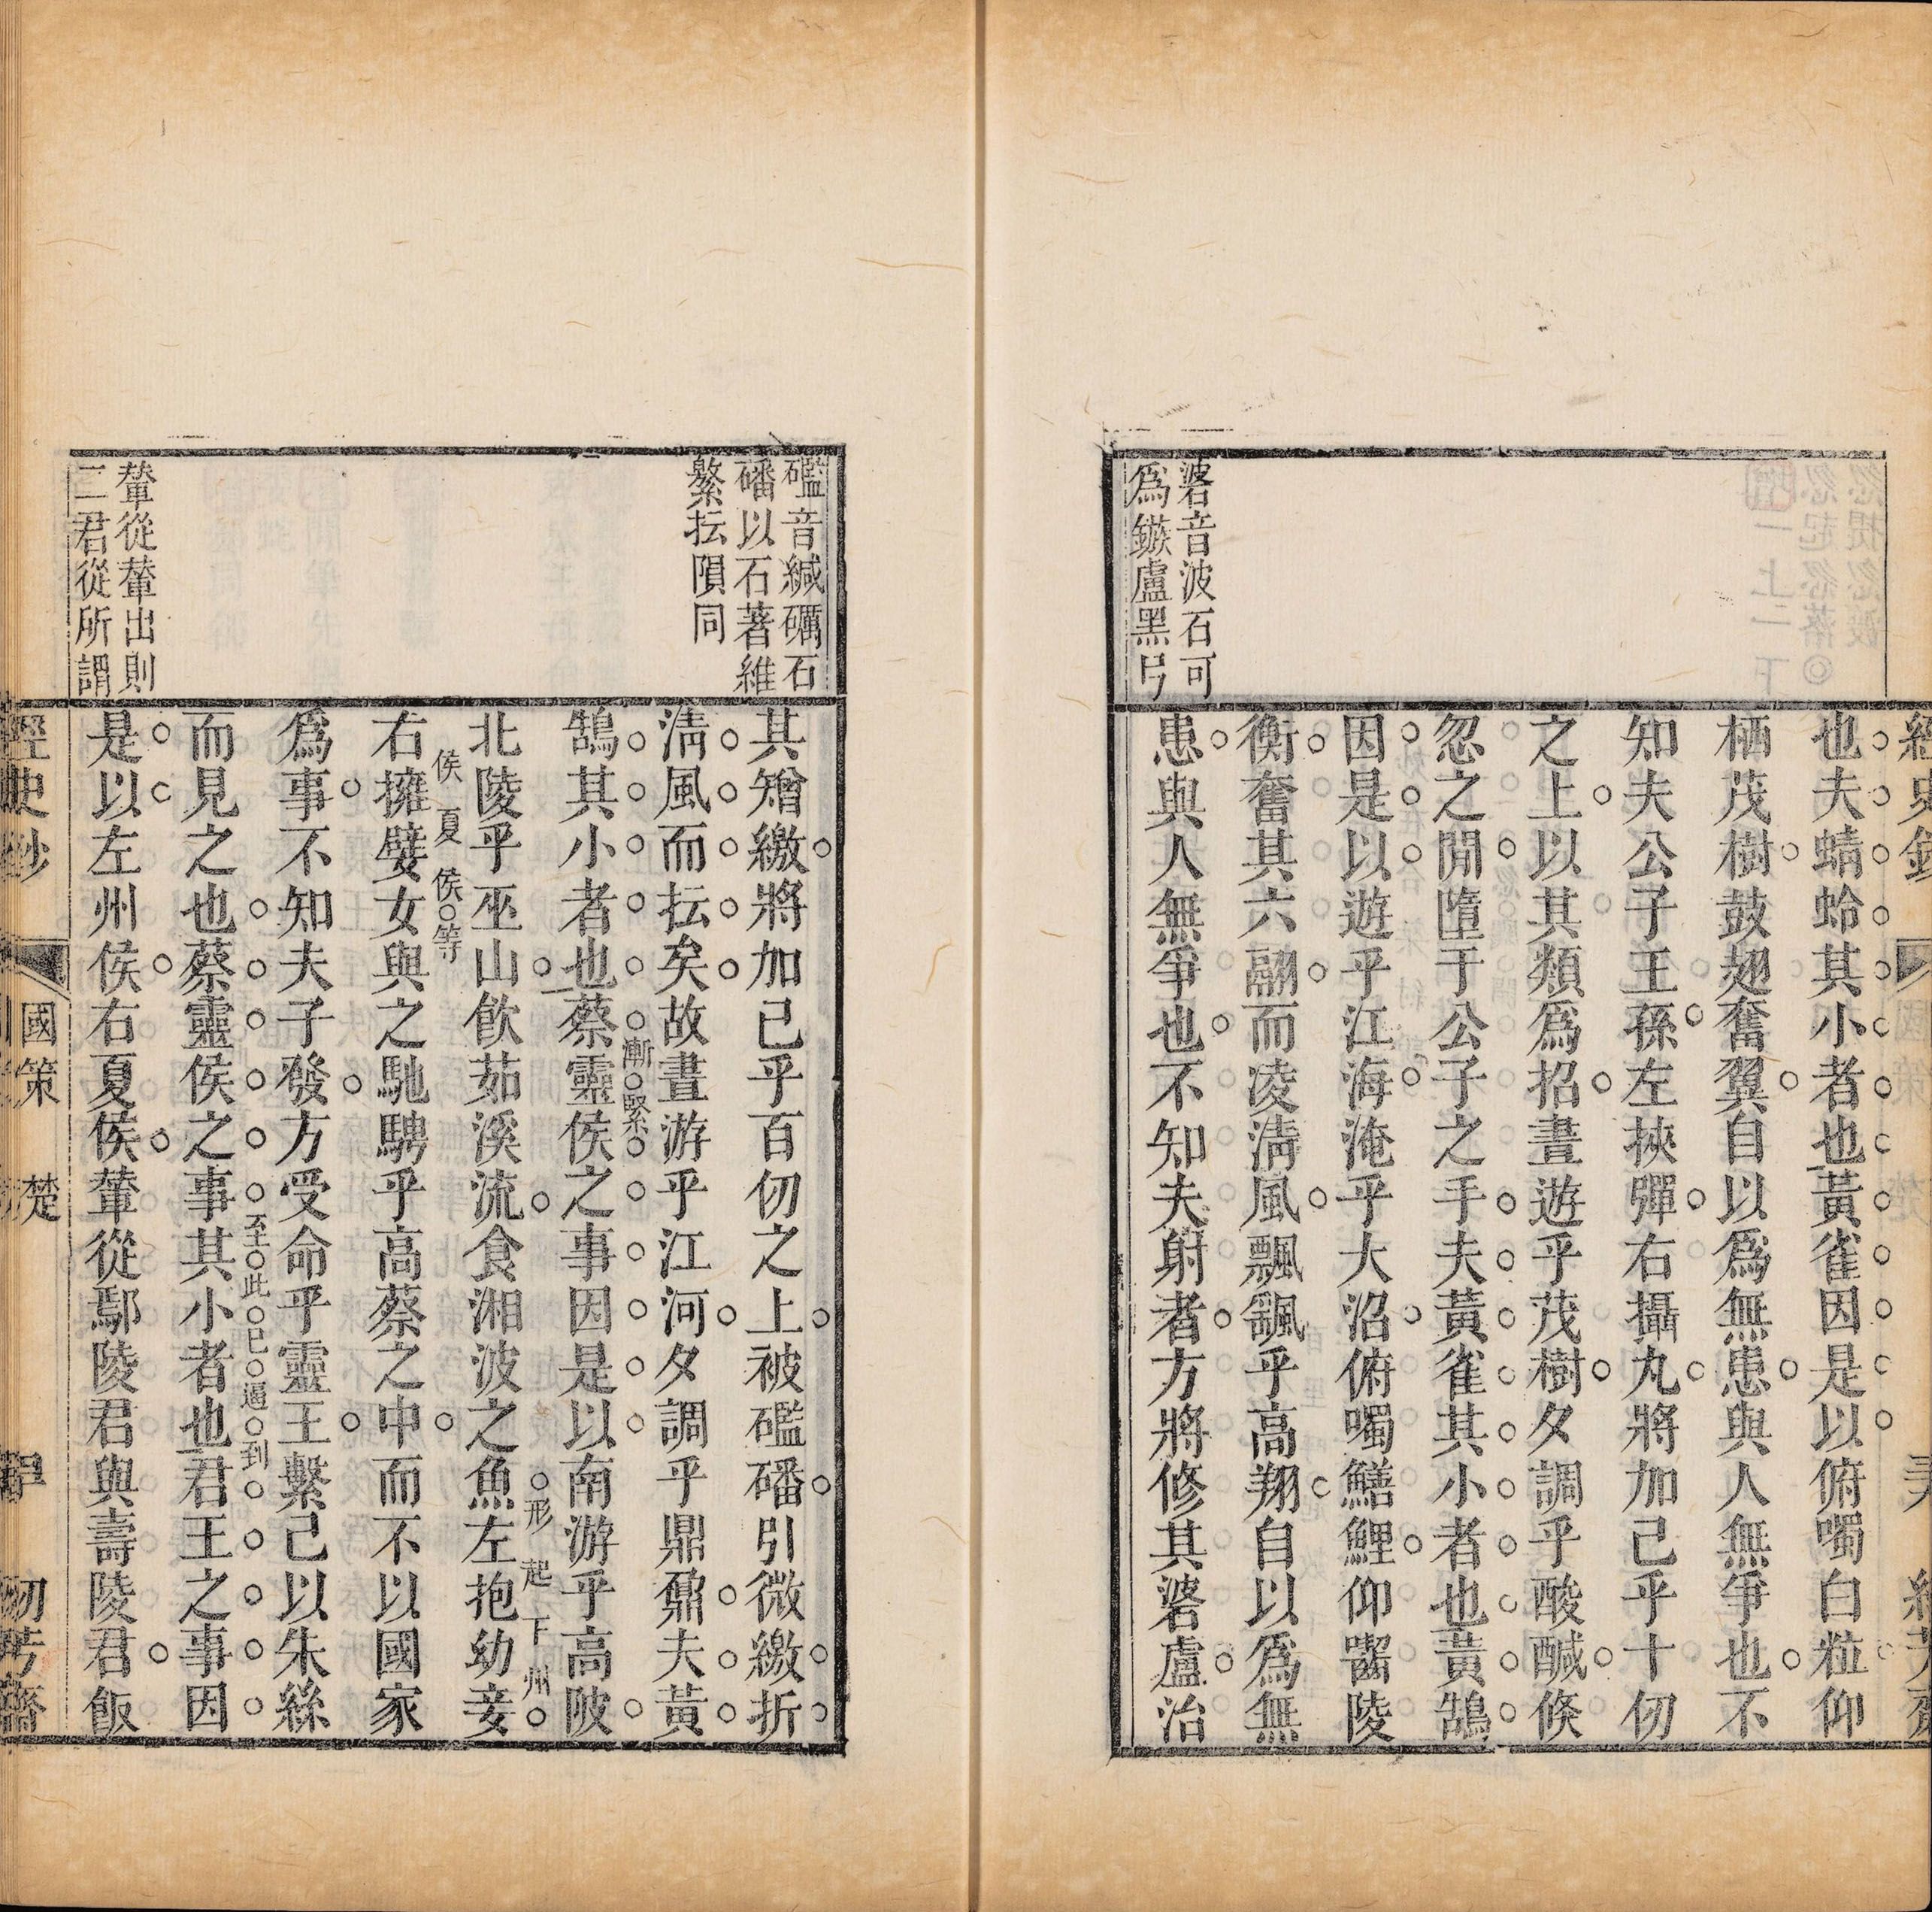 也夫蜻蛉其小者也黃雀因是以俯噣白粒仰
栖茂樹鼓翅奮翼自以爲無患與人無爭也不
知夫公子王孫左挾彈右攝丸將加己乎十仞
之上以其類爲招晝遊乎茂樹夕調乎酸醎倏
忽之閒墮于公子之手夫黃雀其小者也黃鵠
因是以遊乎江海淹乎大沼俯噣鱔鯉仰齧陵
衡奮其六翮而凌淸風飄飖乎高翔自以爲無
患與人無爭也不知夫射者方將修其碆盧治
碆音波石可
爲鏃盧黑弓
礛音緘礪石
磻以石著維
繁抎隕同
其矰繳將加已乎百仞之上被礛磻引微繳折
淸風而抎矣故晝游乎江河夕調乎鼎鼐夫黃
鵠其小者也蔡靈侯之事因是以南游乎高陂
漸緊
北陵乎巫山飮茹溪流食湘波之魚左抱幼妾
形起下州
右擁嬖女與之馳騁乎高蔡之中而不以國家
侯夏侯等
爲事不知夫子發方受命乎靈王繫己以朱絲
而見之也蔡靈侯之事其小者也君王之事因
至此已逼到
是以左州侯右夏侯輦從鄢陵君與壽陵君飯
輦從輦出則
二君從所謂
國策 楚